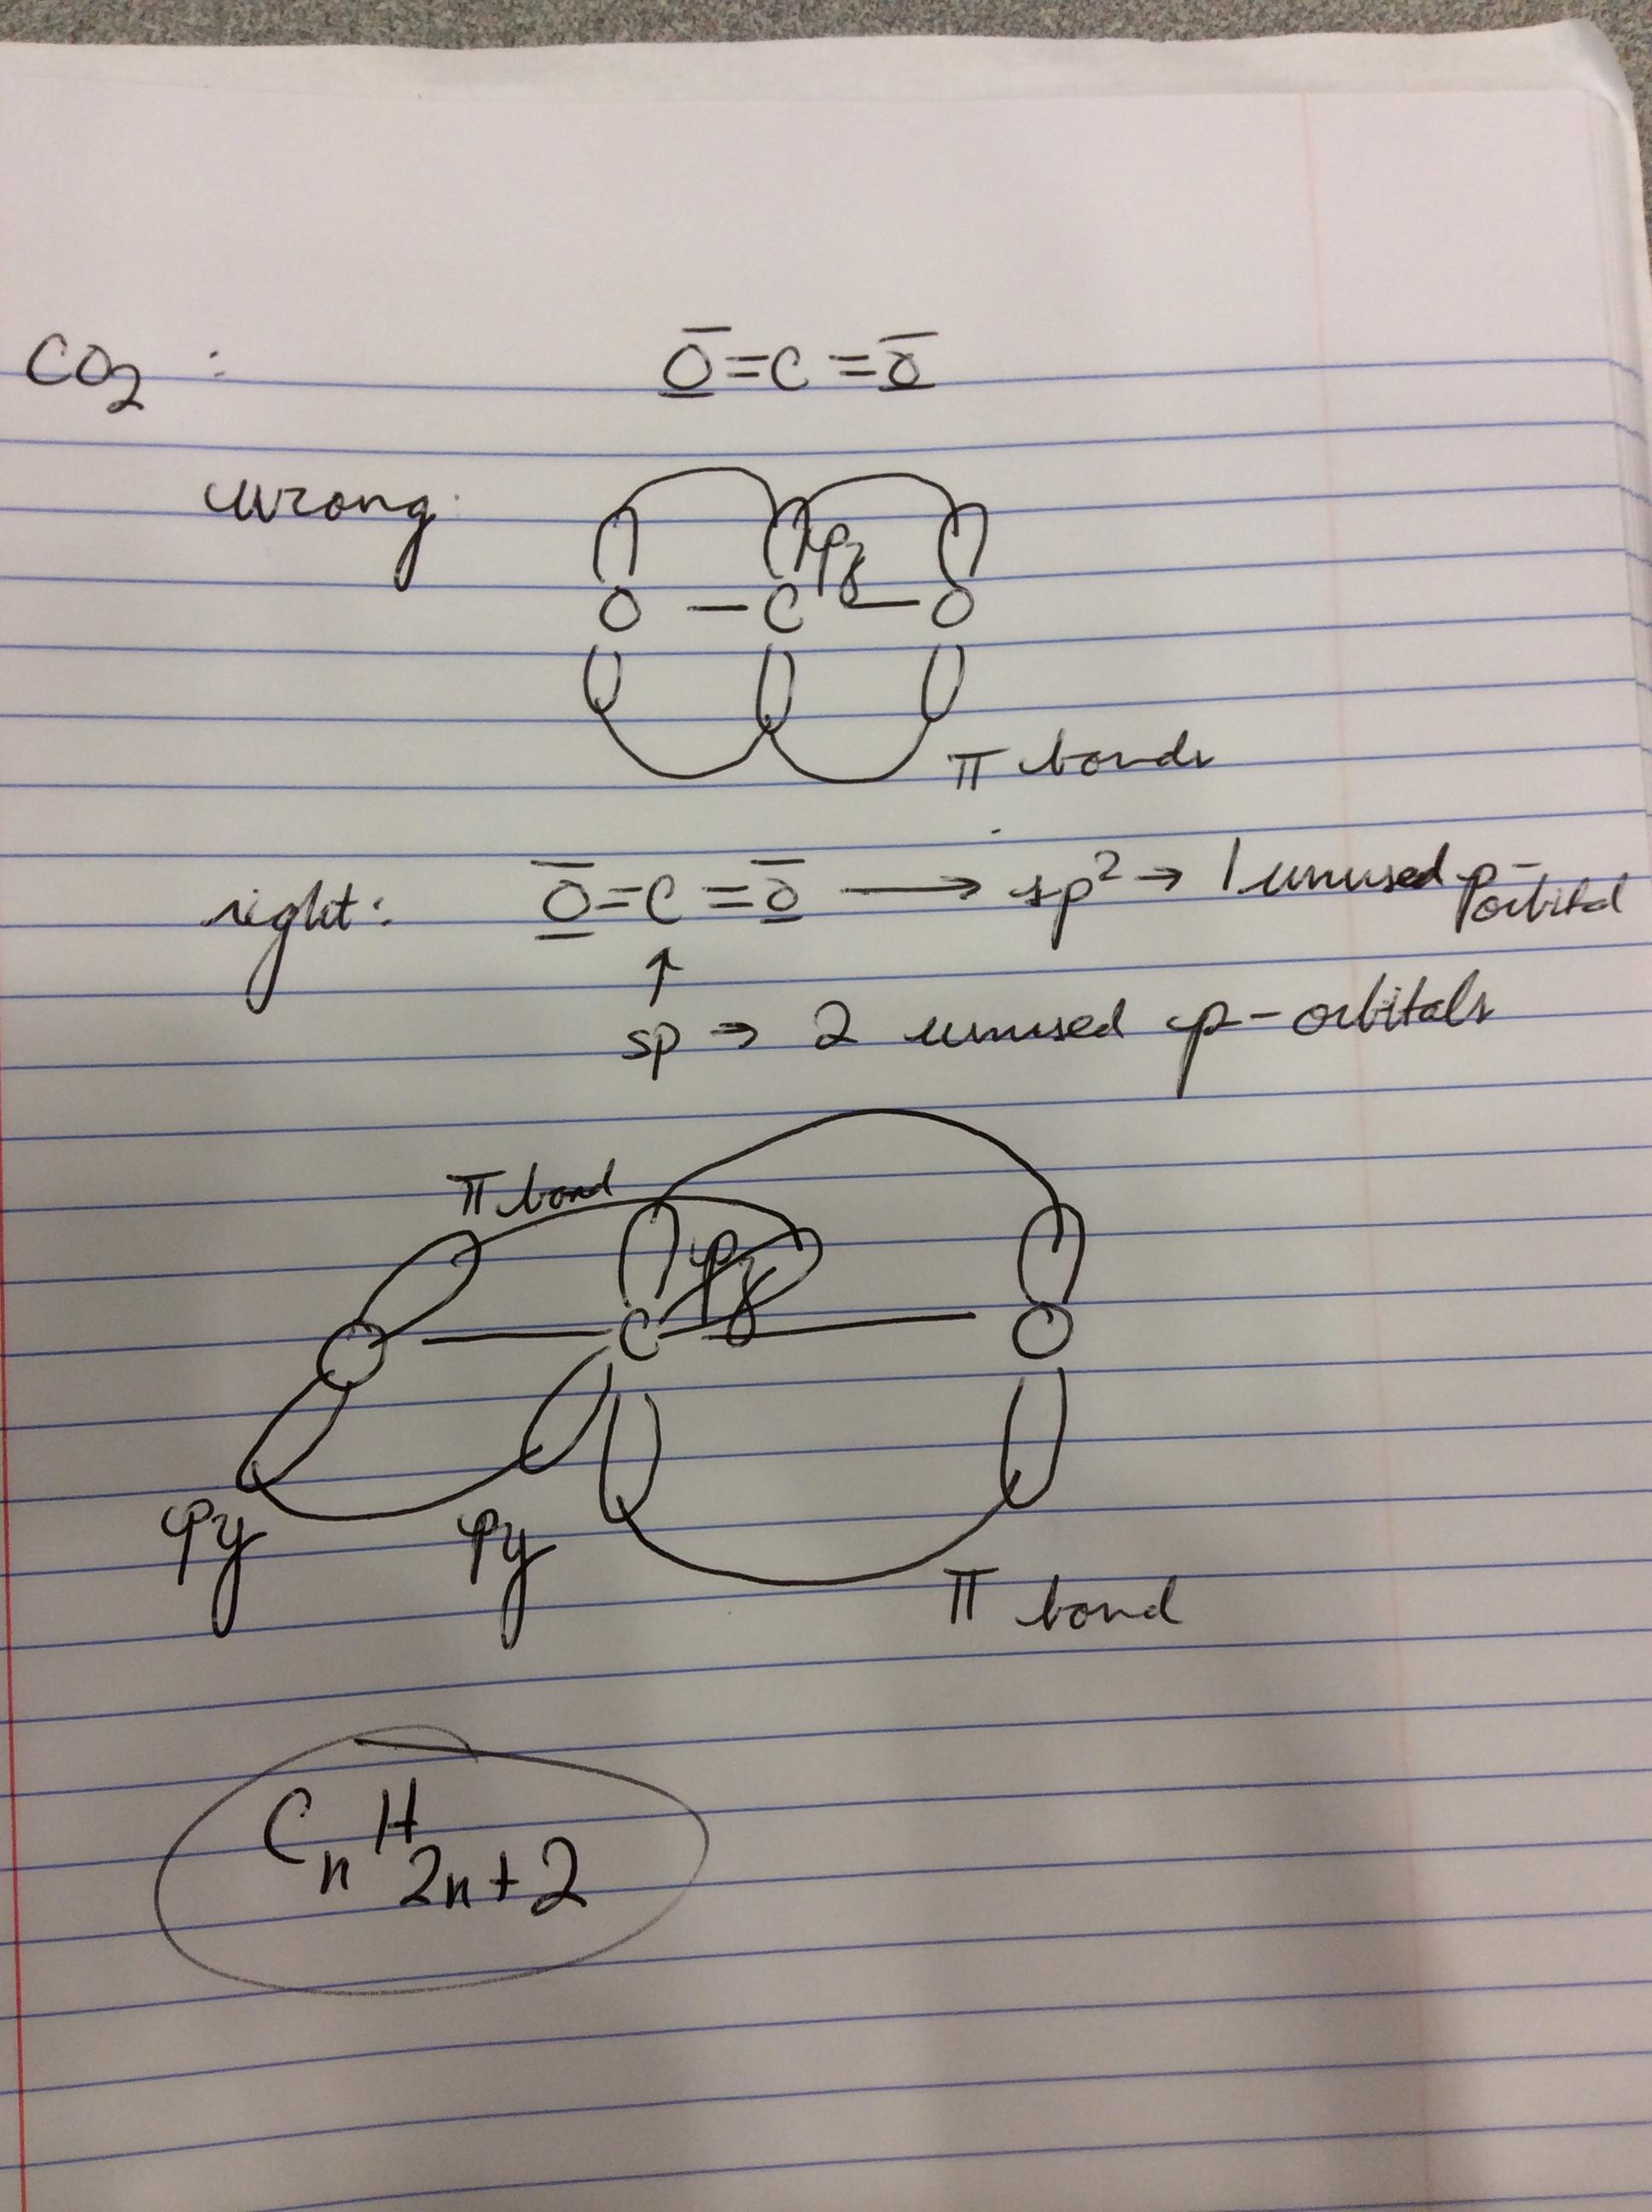 CO₂ : O=C=O
wrong:
pz
O – C – O
π bonds
right: O=C=O → sp² → 1 unused p-orbital
↑
sp ⇒ 2 unused p-orbitals
π bond
pz
O – C – O
py py
π bond
CₙH₂ₙ₊₂